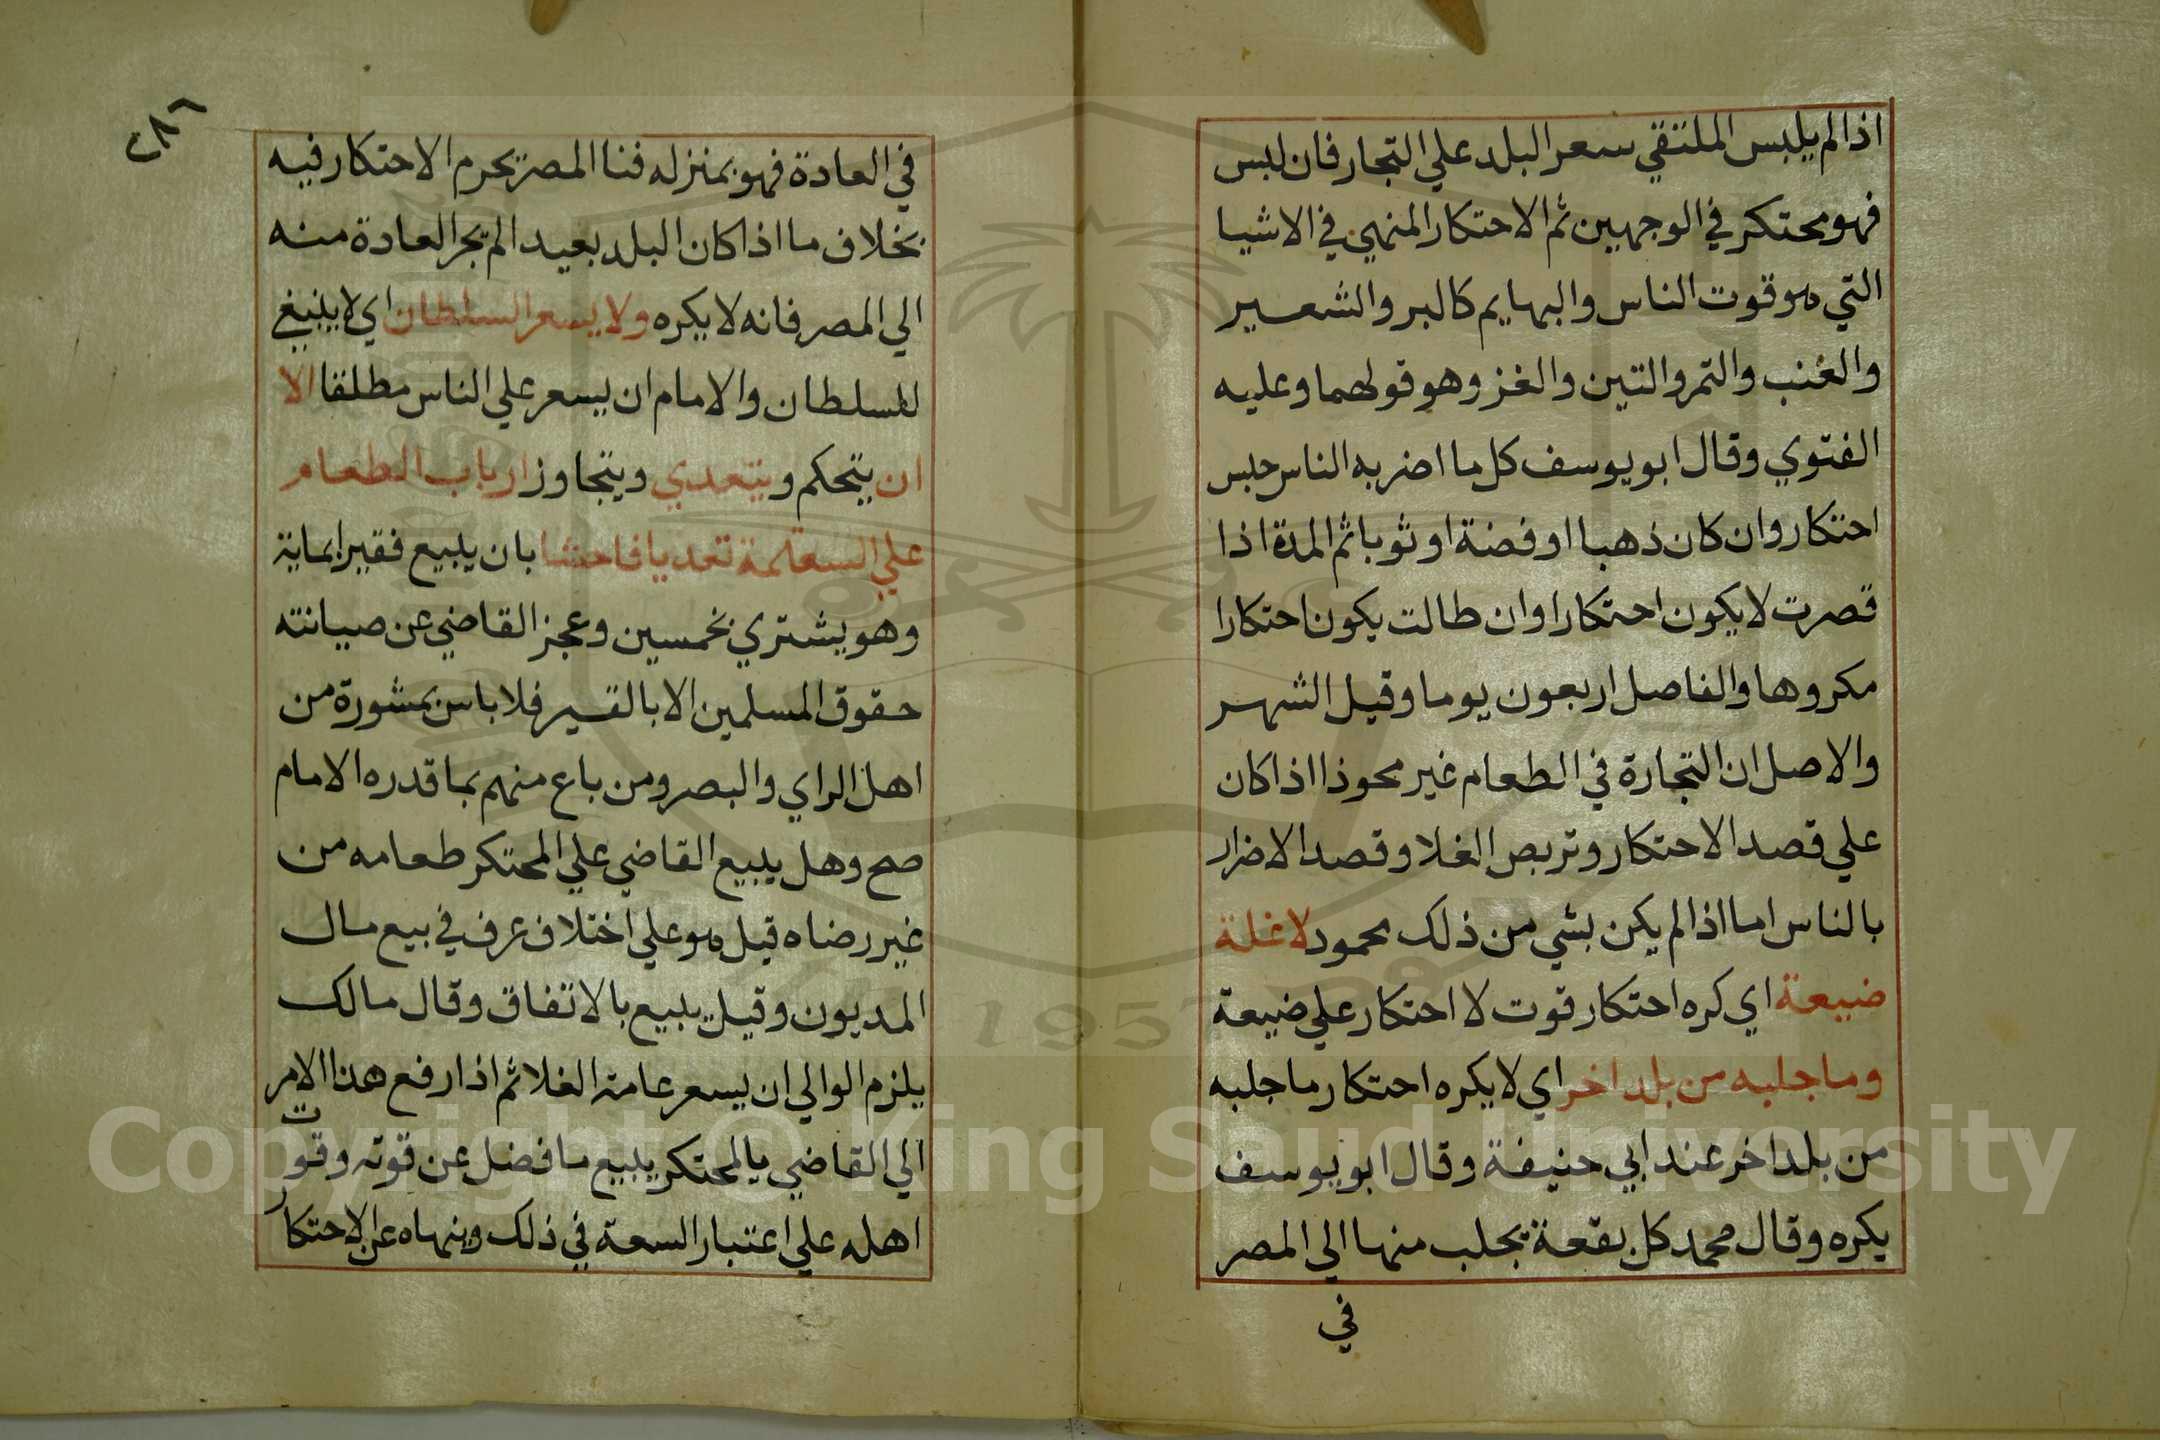 اذا لم يلبس الملتقي سعر البلد علي التجار فان لبس
فهو محتكر في الوجهين ثم الاحتكار المنهي في الاشيا
التي هو قوت الناس والبهايم كالبر والشعير
والعنب والتمر والتين والغز وهو قولهما وعليه
الفتوي وقال ابو يوسف كل ما اضر به الناس حبس
احتكار وان كان ذهبا او فضة او ثوبا ثم المدة اذا
قصرت لا يكون احتكارا وان طالت يكون احتكارا
مكروها والفاصل اربعون يوما وقيل الشهر
والاصل ان التجارة في الطعام غير محوذا اذا كان
علي قصد الاحتكار وتربص الغلا وقصد الاضرار
بالناس اما اذا لم يكن بشي من ذلك محمود لا غلة
ضيعة اي كره احتكار قوت لا احتكار علي ضيعة
وما جلبه من بلد اخر اي لا يكره احتكار ما جلبه
من بلد اخر عند ابي حنيفة وقال ابو يوسف
يكره وقال محمد كل بقعة يجلب منها الي المصر
في
٢٨٦
في العادة فهو بمنزله فنا المصر يحرم الاحتكار فيه
بخلاف ما اذا كان البلد بعيدا لم يجر العادة منه
الي المصر فانه لا يكره ولا يسعر السلطان اي لا ينبغ
للسلطان والامام ان يسعر علي الناس مطلقا الا
ان يتحكم ويتعدي ويتجاوز ارباب الطعام
علي تعديا فاحشا بان يبيع فقيرا بماية
وهو يشتري بخمسين وعجز القاضي عن صيانته
حقوق المسلمين الا بالقسير فلا باس بمشورة من
اهل الراي والبصر ومن باع منهم بما قدره الامام
صح وهل يبيع القاضي علي المحتكر طعامه من
غير رضاه قيل هو علي اختلاف عرف في بيع مال
المديون وقيل يبيع بالاتفاق وقال مالك
يلزم الوالي ان يسعر عامة الغلا ثم اذا رفع هذا الامر
الي القاضي يالمحتكر يبيع ما فضل عن قوته وقوت
اهله علي اعتبار السعة في ذلك وينهاه عن الاحتكار
Copyright © King Saud University
1957